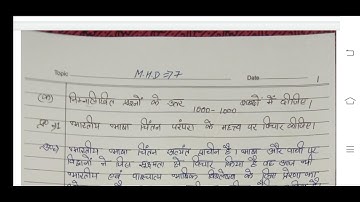 Topic M.H.D=7 Date
1
(क) निम्नलिखित प्रश्नों के उत्तर 1000-1000 शब्दों में दीजिए।
प्र०1 भारतीय भाषा चिंतन परंपरा के महत्व पर विचार कीजिए।
उत्तर) भारतीय भाषा चिंतन अत्यंत प्राचीन है। भाषा और वाणी पर
विद्वानों ने जिस सूक्ष्मता से विचार किया है वह आज भी
भारतीय एवं पाश्चात्य भाषिक विश्लेषण के लिए प्रेरणा का